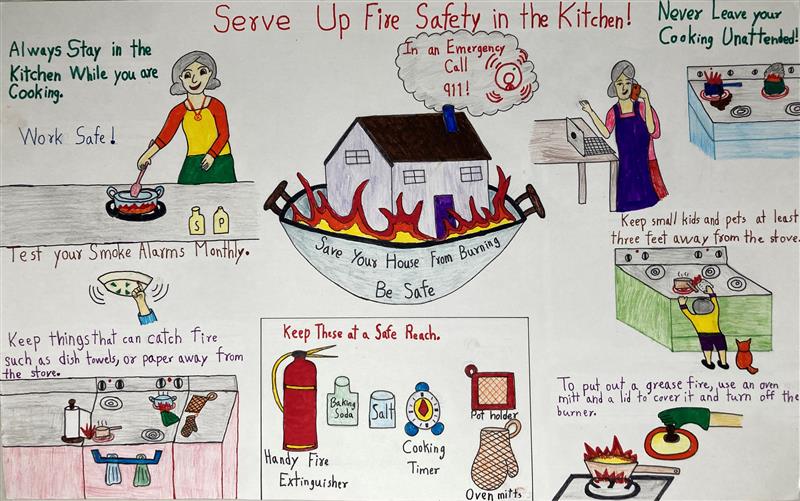 Serve Up Fire Safety in the Kitchen!
Always Stay in the
Kitchen While you are
Cooking.
Work Safe!
S P
Test your Smoke Alarms Monthly.
Keep things that can catch fire
such as dish towels, or paper away from
the stove.
In an Emergency
Call
911!
Save Your House From Burning
Be Safe
Keep These at a Safe Reach.
Handy Fire
Extinguisher
Baking
Soda
Salt
Cooking
Timer
Pot holder
Oven mitts
Never Leave your
Cooking Unattended!
Keep small kids and pets at least
three feet away from the stove.
To put out a grease fire, use an oven
mitt and a lid to cover it and turn off the
burner.